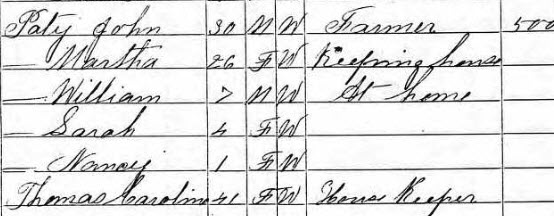 Paty John 30 M W Farmer 500
— Martha 26 F W Keeping house
— William 7 M W At home
— Sarah 4 F W
— Nancy 1 F W
Thomas Caroline 41 F W House Keeper